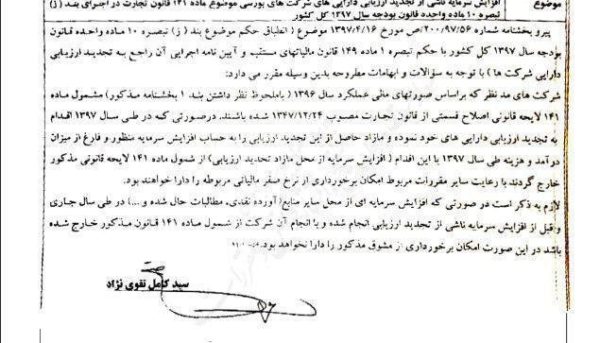 موضوع افزایش سرمایه ناشی از تجدید ارزیابی دارایی های شرکت های بورسی موضوع ماده ۱۴۱ قانون تجارت در اجرای بند (ز)
تبصره ۱۰ ماده واحده قانون بودجه سال ۱۳۹۷ کل کشور
پیرو بخشنامه شماره ۲۰۰/۹۷/۵۶/ص مورخ ۱۳۹۷/۴/۱۶ موضوع (انطباق حکم موضوع بند (ز) تبصره ۱۰ ماده واحده قانون
بودجه سال ۱۳۹۷ کل کشور با حکم تبصره ۱ ماده ۱۴۹ قانون مالیاتهای مستقیم و آیین نامه اجرایی آن راجع به تجدید ارزیابی
دارایی شرکت ها) با توجه به سؤالات و ابهامات مطروحه بدین وسیله مقرر می دارد:
شرکت های مد نظر که براساس صورتهای مالی عملکرد سال ۱۳۹۶ (باملحوظ نظر داشتن بند ۱ بخشنامه مذکور) مشمول ماده
۱۴۱ لایحه قانونی اصلاح قسمتی از قانون تجارت مصوب ۱۳۴۷/۱۲/۲۴ شده باشند، درصورتی که در طی سال ۱۳۹۷ اقدام
به تجدید ارزیابی دارایی های خود نموده و مازاد حاصل از این تجدید ارزیابی را به حساب افزایش سرمایه منظور و فارغ از میزان
درآمد و هزینه طی سال ۱۳۹۷ با این اقدام (افزایش سرمایه از محل مازاد تجدید ارزیابی) از شمول ماده ۱۴۱ لایحه قانونی مذکور
خارج گردند با رعایت سایر مقررات مربوط امکان برخورداری از نرخ صفر مالیاتی مربوطه را دارا خواهند بود.
لازم به ذکر است در صورتی که افزایش سرمایه ای از محل سایر منابع( آورده نقدی، مطالبات حال شده و ...) در طی سال جاری
وقبل از افزایش سرمایه ناشی از تجدید ارزیابی انجام شده و با انجام آن شرکت از شمول ماده ۱۴۱ قانون مذکور خارج شده
باشد در این صورت امکان برخورداری از مشوق مذکور را دارا نخواهد بود.
سید کامل تقوی نژاد